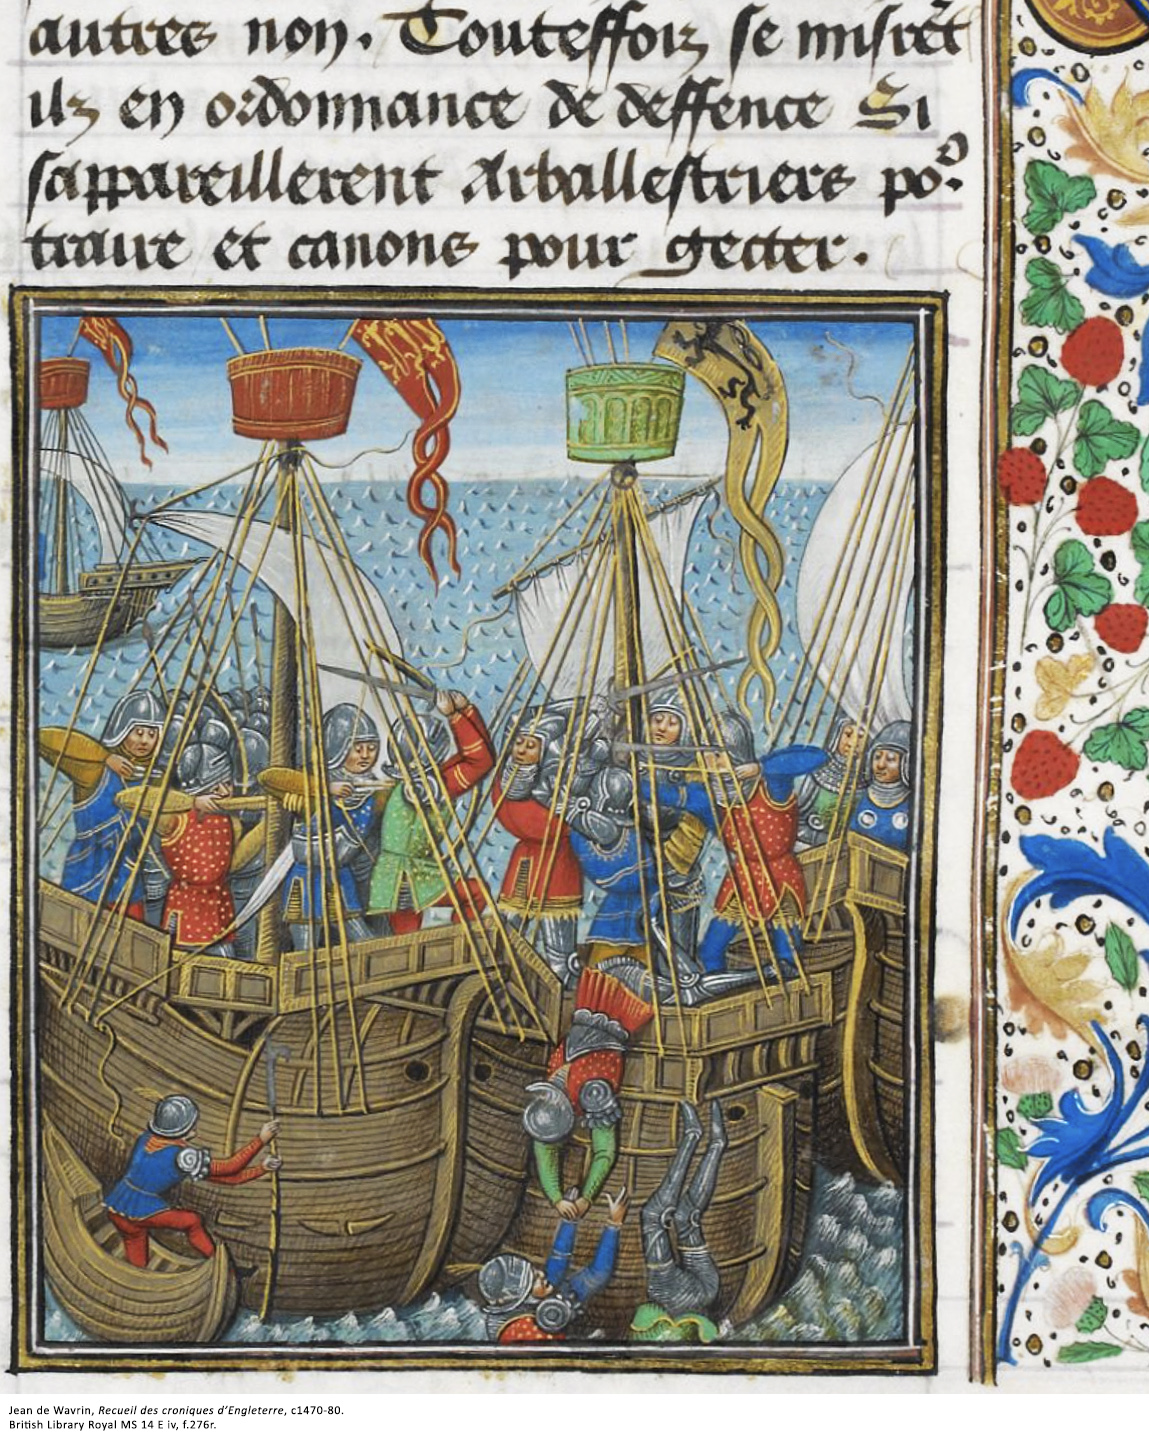 autres non. Touteffoiz se misrēt
ilz en ordonnance de deffence Si
sappareillerent Arballestriers po᷑.
traire et canons pour gecter.
Jean de Wavrin, Recueil des croniques d'Engleterre, c1470-80.
British Library Royal MS 14 E iv, f.276r.